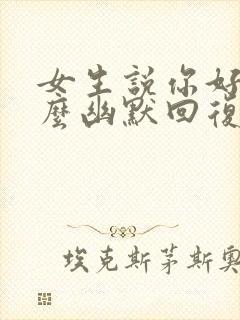 女生説你好
麼幽默回復
埃克斯茅斯奧